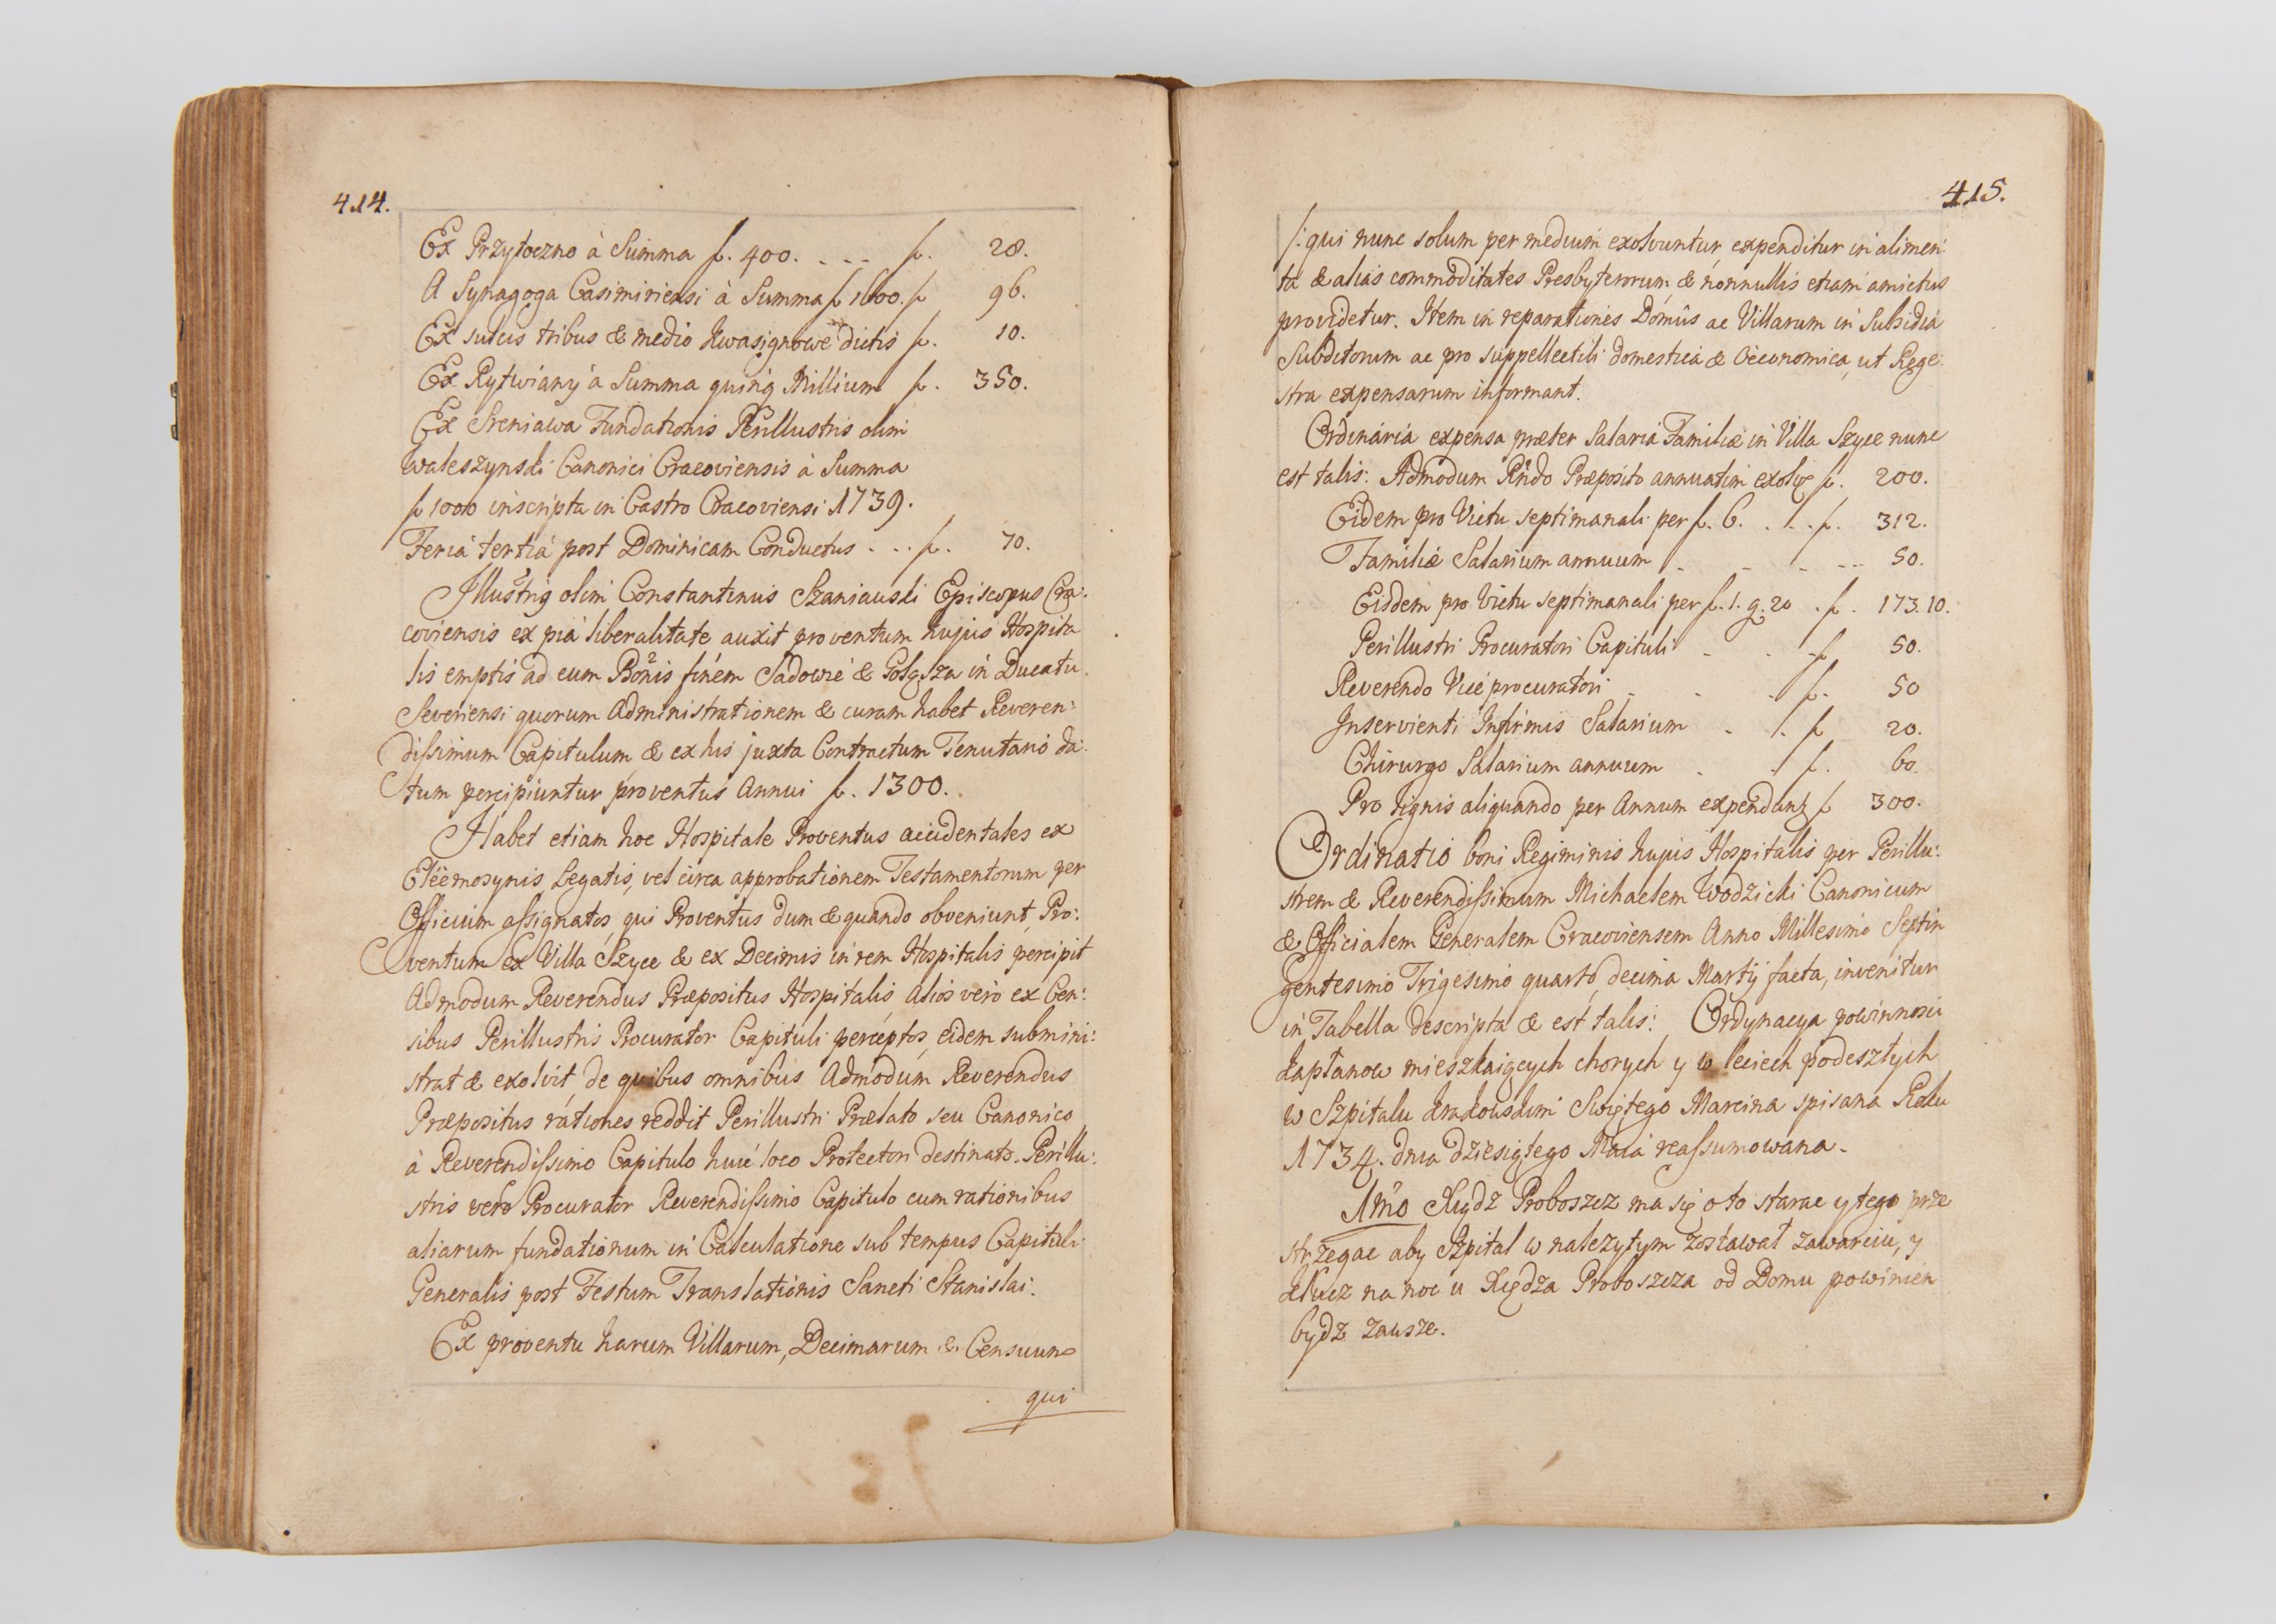 414.
Ex Przytoczno à Summa f. 400. - - - f. 28.
A Synagoga Casimiriensi à Summa f 1600. f 96.
Ex sulcis tribus & medio kwasigrowe dictis f. 10.
Ex Rytwiany à Summa quinq Millium f. 350.
Ex Sreniawa Fundationis Perillustris olim
Waleszynski Canonici Cracoviensis à Summa
f 1000 inscripta in Castro Cracoviensi 1739.
Feria tertia post Dominicam Conductus - - - f. 70.
Illustris olim Constantinus Szaniauski Episcopus Cra:
coviensis ex pia liberalitate auxit proventum hujus Hospita
lis emptis ad eum Bonis finem Sadowie & Goląsza in Ducatu
Severiensi quorum Administrationem & curam habet Reveren:
dissimum Capitulum, & ex his juxta Contractum Tenutario da:
tum percipiuntur proventus Annui f. 1300.
Habet etiam hoc Hospitale Proventus accidentales ex
Eleemosynis Legatis, vel circa approbationem Testamentorum per
Officium assignatos, qui Proventus dum & quando obveniunt, Pro:
ventum ex Villa Szyce & ex Decimis in rem Hospitalis percipit
Admodum Reverendus Præpositus Hospitalis Alios vero ex Cen:
sibus Perillustris Procurator Capituli perceptos, eidem submini:
strat & exolvit de quibus omnibus Admodum Reverendus
Præpositus rationes reddit Perillustri Prælato seu Canonico
à Reverendissimo Capitulo huic loco Protectori destinato. Perillu:
stris vero Procurator Reverendissimo Capitulo cum rationibus
aliarum fundationum in Calculatione sub tempus Capituli
Generalis post Festum Translationis Sancti Stanislai.
Ex proventu harum Villarum, Decimarum & Censuum
qui
415.
/: qui nunc solum per medium exolvuntur, expenditur in alimen:
ta & alias commoditates Presbyterorum, & nonnullis etiam amictus
providetur. Item in reparationes Domûs ac Villarum in Subsidia
Subditorum ac pro suppellectili domestica & Oeconomica, ut Rege:
stra expensarum informant.
Ordinaria expensa præter Salaria Familiæ in Villa Szyce nunc
est talis: Admodum Rndo Præposito annuatim exolve f. 200.
Eidem pro Victu septimanali per f. 6. . . . f. 312.
Familiæ Salarium annuum - - - - - 50.
Eisdem pro Victu septimanali per f. 1. g. 20 . f. 173.10.
Perillustri Procuratori Capituli - - - f 50.
Reverendo Vice procuratori - - . f. 50
Inservienti Infirmis Salarium - . f 20.
Chirurgo Salarium annuum . . f. 60.
Pro lignis aliquando per Annum expendunt f 300.
Ordinatio boni Regiminis hujus Hospitalis per Perillu:
strem & Reverendissimum Michaelem Wodzicki Canonicum
& Officialem Generalem Cracoviensem Anno Millesimo Septin
gentesimo Trigesimo quarto, decima Martij facta, invenitur
in Tabella descripta & est talis: Ordynacya powinnosci
kapłanow mieszkaiących chorych y w leciech podeszłych
w Szpitalu krakouskim Swiętego Marcina spisana Roku
1734. dnia dziesiątego Maia reassumowana.
1mo Xiądz Proboszcz ma się o to starac y tego prze
strzegac aby Szpital w nalezytym zostawał zawarciu, y
klucz na noc u Xiędza Proboszcza od Domu powinien
bydz zausze.